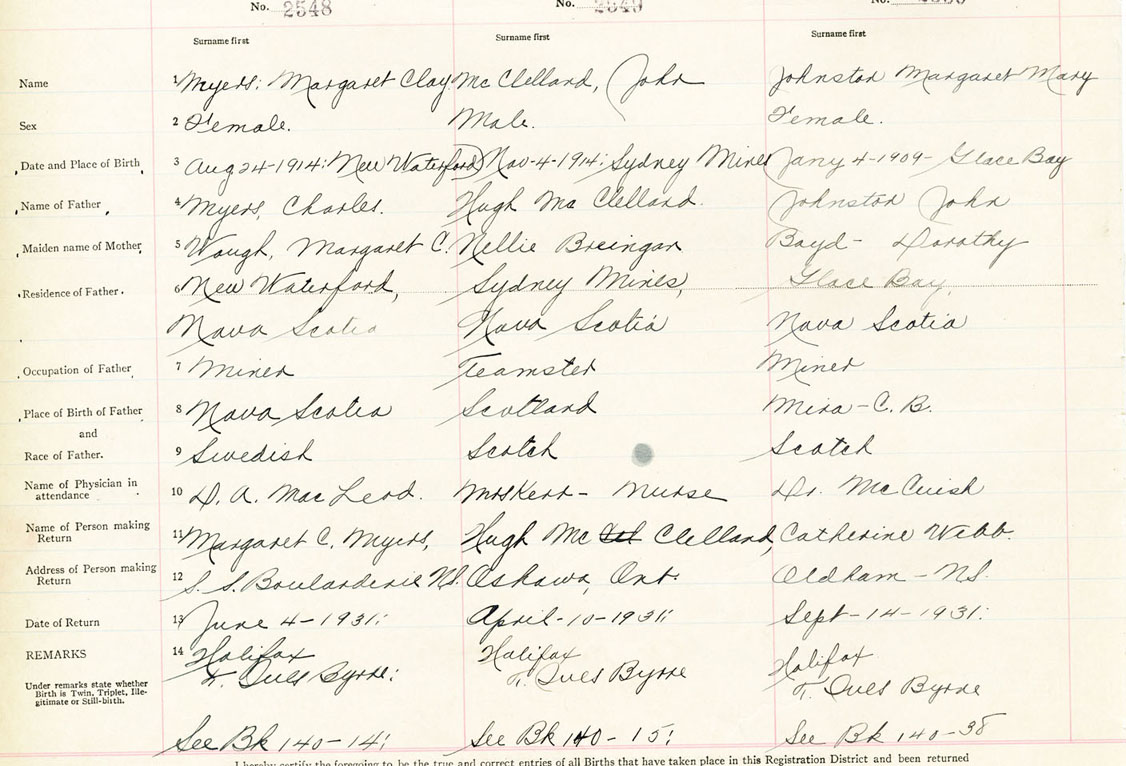 No. 2548 No. 2549 No.
Surname first Surname first Surname first
Name 1 Myers; Margaret Clay Mc Clelland, John Johnston Margaret Mary
Sex 2 Female. Male. Female.
Date and Place of Birth 3 Aug 24-1914: New Waterford) Nov-4-1914: Sydney Mines Jany 4-1909- Glace Bay
Name of Father 4 Myers, Charles. Hugh Mc Clelland. Johnston John
Maiden name of Mother 5 Waugh, Margaret C. Nellie Breingan Boyd- Dorothy
Residence of Father 6 New Waterford, Sydney Mines, Glace Bay,
Nova Scotia Nova Scotia Nova Scotia
Occupation of Father 7 Miner Teamster Miner
Place of Birth of Father 8 Nova Scotia Scotland Mira-C. B.
and
Race of Father. 9 Swedish Scotch Scotch
Name of Physician in
attendance 10 D. A. Mac Leod. Mrs Kerr- Nurse Dr. McCuish
Name of Person making
Return 11 Margaret C. Myers, Hugh Mc Clelland, Catherine Webb.
Address of Person making
Return 12 S. S. Boularderie NS. Oshawa, Ont. Oldham-NS.
Date of Return 13 June 4-1931: April-10-1931: Sept-14-1931:
REMARKS 14 Halifax Halifax Halifax
Under remarks state whether
Birth is Twin, Triplet, Ille-
gitimate or Still-birth.
Byrne: Byrne Byrne
See Bk 140-14: See Bk 140-15: See Bk 140-38
I hereby certify the foregoing to be the true and correct entries of all Births that have taken place in this Registration District and been returned